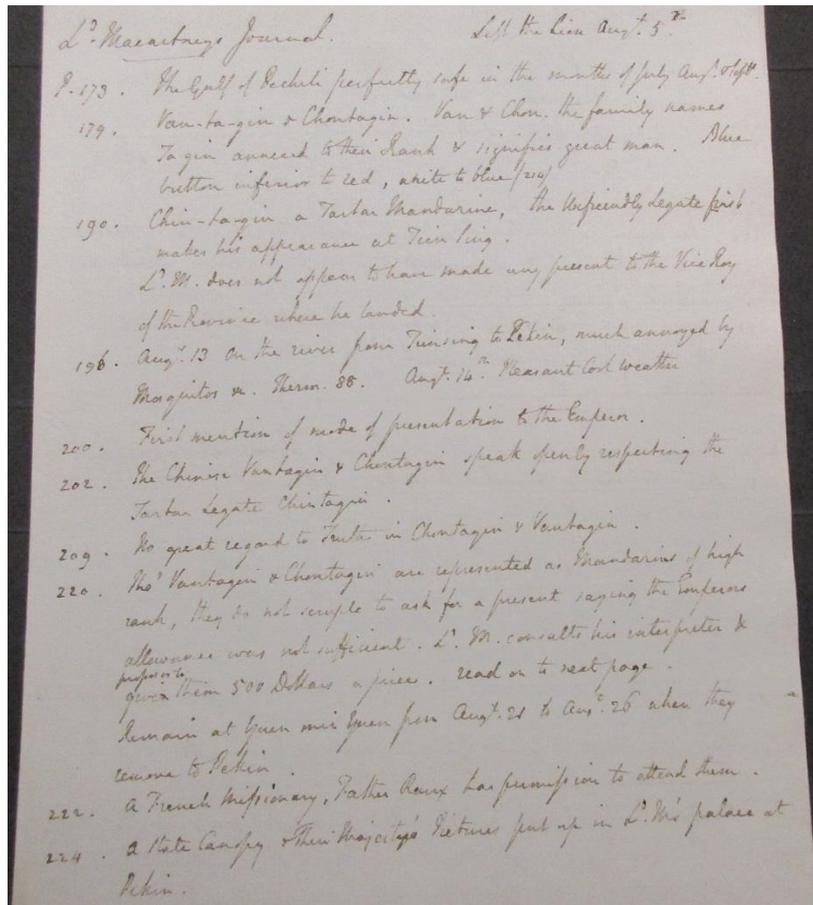 Ld. Macartneys Journal. Left the Lion Augt. 5th
P. 173. The Gulf of Pecheli perfectly safe in the months of July Augt. & Sept.
179. Van-ta-gin & Chontagin. Van & Chon. the family names
Ta gin annexed to their Rank & signifies great man. Blue
button inferior to red, white to blue (214)
190. Chin-ta-gin a Tartar Mandarine, the Unfriendly Legate first
makes his appearance at Tien Sing.
Ld. M. does not appear to have made any present to the Vice Roy
of the Province where he landed.
196. Augt. 13 On the river from Tiensing to Pekin, much annoyed by
Mosquitos &c. Therm. 88. Augt. 14th. Pleasant Cool weather
200. First mention of mode of presentation to the Emperor.
202. The Chinese Vantagin & Chontagin speak openly respecting the
Tartar Legate Chintagin.
209. No great regard to Truth in Chontagin & Vantagin.
220. Tho' Vantagin & Chontagin are represented as Mandarins of high
rank, they do not scruple to ask for a present saying the Emperors
allowance was not sufficient. Ld. M. consults his interpreter &
proposes to
give them 500 Dollars a piece. read on to next page.
Remain at Yuen min Yuen from Augt. 21 to Augt. 26 when they
remove to Pekin.
222. A French Missionary, Father Raux has permission to attend them.
224. A State Canopy & Their Majesty's Pictures put up in Ld. M's palace at
Pekin.